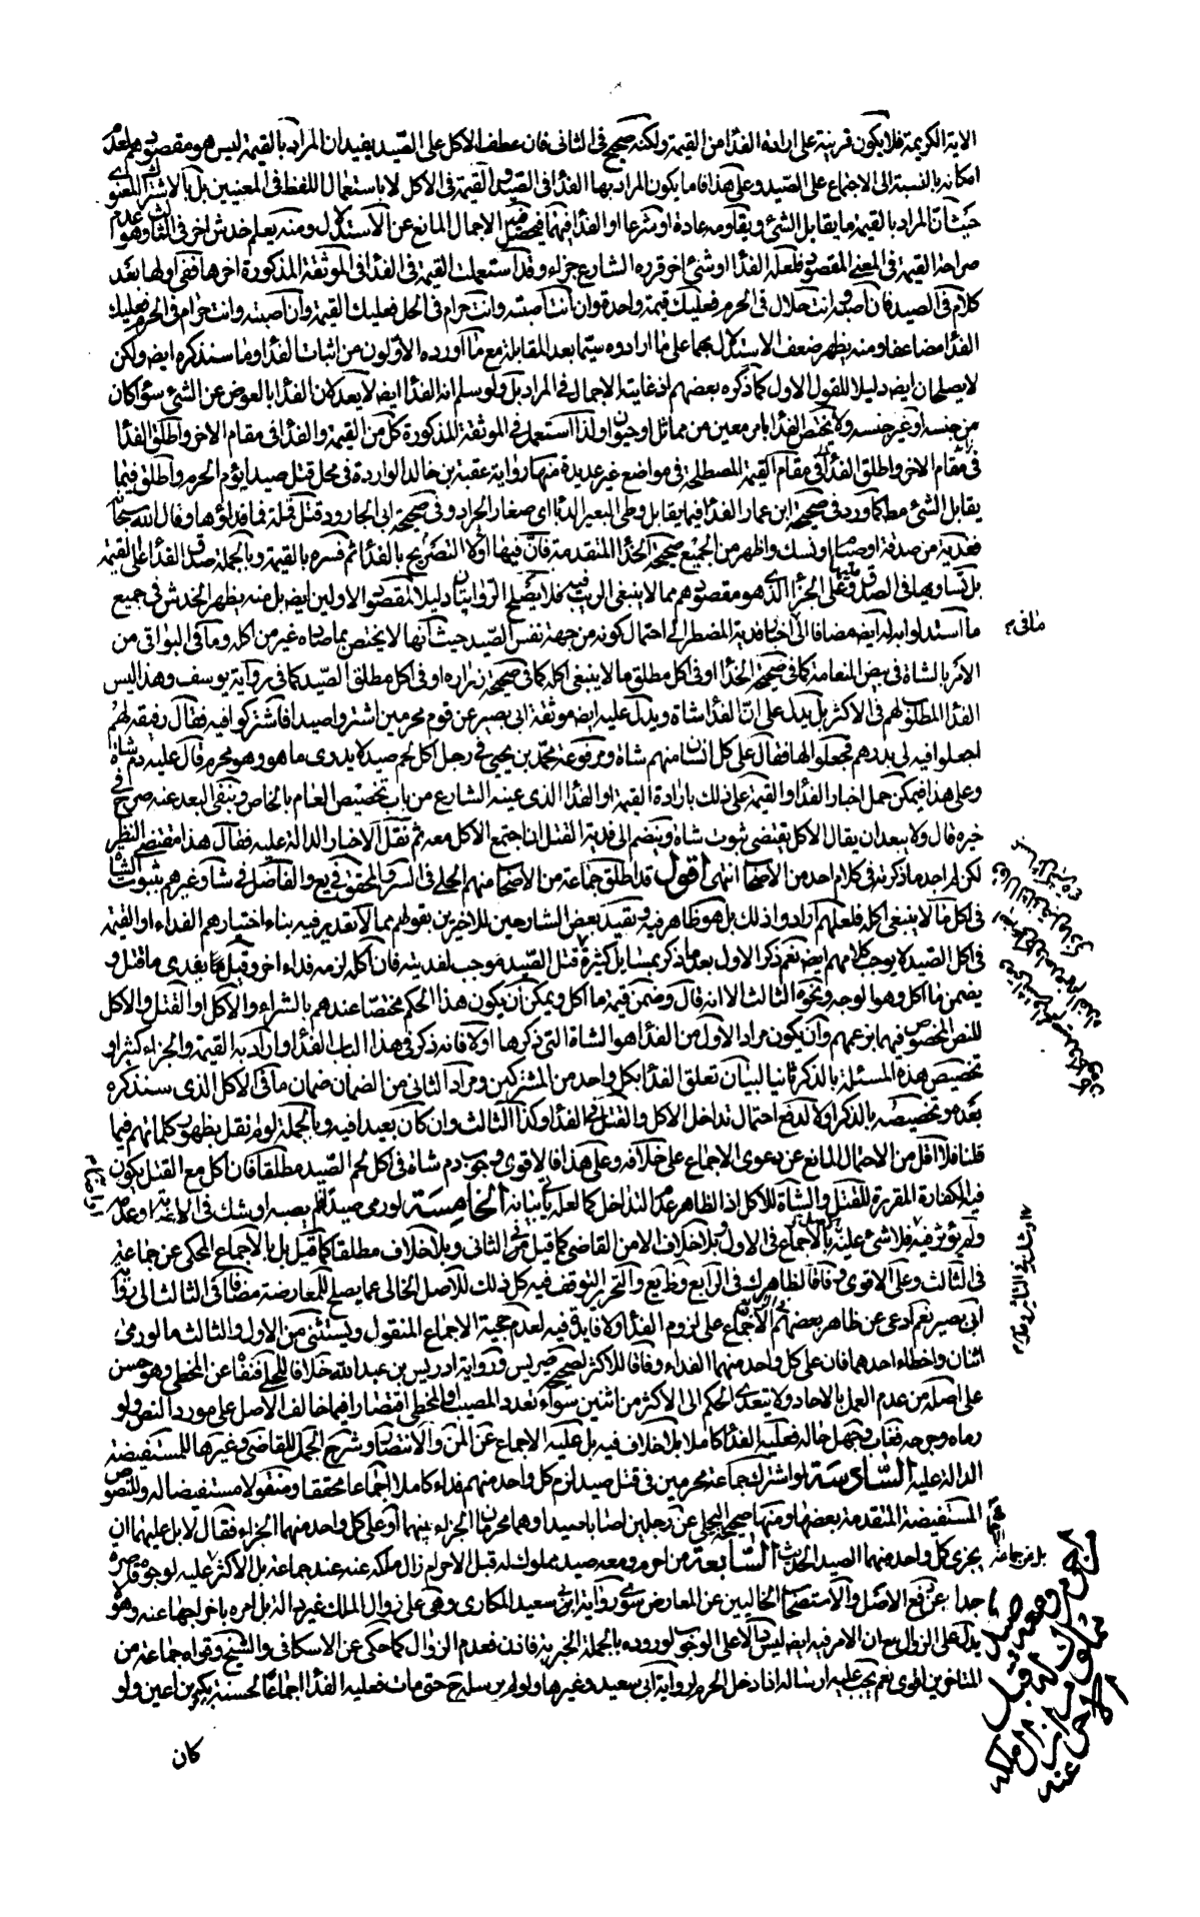 الاية الكريمة فلا يكون قرينة على ارادة الفداء من القيمة ولكنه صحيح في الثاني فان عطف الاكل على الصيد يفيد ان المراد بالقيمة ليس هو مقصودهم لعدم
امكانه بالنسبة الى الاجماع على الصيد وعلى هذا فاما يكون المراد بها الفداء في الصيد والقيمة في الاكل لا باستعمال اللفظ في المعنيين بل بالاشتراك المعنوي
حيث ان المراد بالقيمة ما يقابل الشئ ويقاومه عادة او شرعا او الفداء فيهما فيحصل الاجمال المانع عن الاستدلال ومنه يعلم خدش اخر في الثاني وهو عدم
صراحة القيمة في المعنى المقصود فلعله الفداء او شئ اخر قرره الشارع جزاء وقد استعملت القيمة في الفداء في الموثقة المذكورة اخرها ففي اولها بعد
كلام في الصيد فان اصبته وانت حلال في الحرم فعليك قيمة واحدة وان انت اصبته وانت حرام في الحل فعليك القيمة وان اصبته وانت حرام في الحرم فعليك
الفداء مضاعفا ومنه يظهر ضعف الاستدلال بهما على ما ارادوه سيما بعد المقابلة مع ما اورده الاولون من اثبات الفداء وما سنذكره ايضه ولكن
لا يصلحان ايضه دليلا للقول الاول كما ذكره بعضهم اذ غايته الاجمال في المراد بل ولو سلم انه الفداء ايضه لا يعد لان الفداء بالعوض عن الشئ سواء كان
من جنسه او غير جنسه ولا يختص الفداء بامر معين من مماثل او حيوان ولذا استعمل في الموثقة المذكورة كل من القيمة والفداء في مقام الاخر واطلق الفداء
في مقام الاخر واطلق الفداء في مقام القيمة المصطلحة في مواضع غير عديدة منها رواية عقبة بن خالد الواردة في محل قتل صيدا يؤم الحرم واطلق فيما
يقابل الشئ مط كما ورد في صحيحة ابن عمار الفداء فيما يقابل وطى البعير الدبا اي صغار الجراد وفي صحيحة ابي الجارود قتل قملة فما فداؤها وقال الله سبحانه
ففدية من صدقة او صيام او نسك واظهر من الجميع صحيحة الحذاء المتقدمة فان فيها اولا التصريح بالفداء ثم فسره بالقيمة وبالجملة صدق الفداء على القيمة
بل تساويها في الصدق وعلى الجزاء الذي هو مقصودهم مما لا ينبغي الريب فيه فلا يصلح الروايتان دليلا لمقصود الاولين ايضه بل منه يظهر الخدش في جميع
ما استدلوا به له ايضه مضافا الى اخبار فدية المضطر الى احتمال كونه من جهة نفس الصيد حيث انها لا يختص بما صاده غير من اكله وما في البواقي من
الامر بالشاة في بيض النعامة كما في صحيحة الحذاء او في اكل مطلق ما لا ينبغي اكله كما في صحيحة زراره او في اكل مطلق الصيد كما في رواية يوسف وهذا ليس
الفداء المطلوب لهم في الاكثر بل يدل على ان الفداء شاة ويدل عليه ايضه موثقة ابي بصير عن قوم محرمين اشتروا صيدا فاشتركوا فيه فقال رفيقه لهم
اجعلوا فيه لي بدرهم فجعلوا لها فقال على كل انسان منهم شاة ومرفوعة محمد بن يحيى في رجل اكل لحم صيد لا يدرى ما هو وهو محرم قال عليه دم شاة
وعلى هذا فيمكن حمل اخبار الفداء والقيمة على ذلك بارادة القيمة او الفداء الذي عينه الشارع من باب تخصيص العام بالخاص وينفى البعد عنه صريح في
خيره قال ولا يبعد ان يقال الاكل يقتضي ثبوت شاة وينضم الى فدية القتل ان اجتمع الاكل معه ثم نقل الاخبار الدالة عليه فقال هذا مقتضى النظر
لكن لم اجد ما ذكرته في كلام احد من الاصحاب انتهى اقول قد اطلق جماعة من الاصحاب منهم الحلي في السرائر والمحقق في يع والفاضل في شاد وغيرهم بثبوت الشاة
في اكل ما لا ينبغي اكله فلعلهم ارادوا ذلك بل هو ظاهر فيه وتقييد بعض الشارحين للاخيرين بقولهم مما لا تقدير فيه بناء اختيارهم الفداء او القيمة
في اكل الصيد لا يوجب كلامهم ايضه نعم ذكر الاول بعد ما ذكر بمسايل كثيرة قتل الصيد موجب لفديته فان اكله لزمه فداء اخر وقيل بما يفدى ما قتل و
يضمن ما اكل وهو الوجه ونحوه الثالث الا انه قال وضمن قيمة ما اكل ويمكن ان يكون هذا الحكم مختصا عندهم بالشراء والاكل او القتل والاكل
للنص المخصوص فيهما بزعمهم وان يكون مراد الاول من الفداء هو الشاة التي ذكرها اولا فانه ذكر في هذا الباب الفداء واراد به القيمة والجزاء كثيرا و
تخصيص هذه المسئلة بالذكر ثانيا لبيان تعلق الفداء بكل واحد من المشتركين ومراد الثاني من الضمان ضمان ما في الاكل الذي سنذكره
بعد هو تخصيصه بالذكر اولا لدفع احتمال تداخل الاكل والقتل في الفداء وكذا الثالث وان كان بعيدا فيه وبالجملة لو لم نقل بظهور كلماتهم فيما
قلنا فلا اقل من الاحتمال المانع عن دعوى الاجماع على خلافه وعلى هذا فالاقوى وجوب دم شاة في اكل لحم الصيد مطلقا فان اكل مع القتل يكون
فيه الكفارة المقررة للقتل والشاة للاكل اذ الظاهر عدم التداخل كما لعله يأتي بيانه الخامسة لو رمى صيدا فلم يصبه او شك في الاصابة او عدمه
ولم يؤثر فيه فلا شئ عليه بالاجماع في الاول وبلا خلاف الا من القاضي كما قيل في الثاني وبلا خلاف مطلقا كما قيل بل بالاجماع المحكي عن جماعة
في الثالث وعلى الاقوى وفاقا لظاهر في الرابع وظ يع والتحرير التوقف فيه كل ذلك للاصل الخالى عما يصلح للمعارضة مضافا في الثالث الى رواية
ابي بصير نعم ادعى عن ظاهر بعضهم الاجماع على لزوم الفداء ولا فايدة فيه لعدم حجية الاجماع المنقول ويستثنى من الاول والثالث ما لو رمى
اثنان واخطاء احدهما فان على كل واحد منهما الفداء وفاقا للاكثر لصحيح ضريس ورواية ادريس بن عبد الله خلافا للحلي فنفاه عن المخطى وهو حسن
على اصله من عدم العمل بالاحاد ولا يتعدى الحكم الى الاكثر من اثنين سواء تعدد المصيب او المخطى اقتصارا فيما خالف الاصل على مورد النص ولو
رماه وجرحه فغاب وجهل حاله فعليه الفداء كاملا بلا خلاف فيه بل عليه الاجماع عن الخلاف والانتصار وشرح الجمل للقاضي وغيرها للمستفيضة
الدالة عليه السادسة لو اشترك جماعة محرمين في قتل صيد لزم كل واحد منهم فداء كاملا اجماعا محققا ومنقولا مستفيضا له وللنصوص
المستفيضة المتقدمة بعضها ومنها صحيحة البجلي عن رجلين اصابا صيدا وهما محرمان الجزاء بينهما او على كل واحد منهما الجزاء فقال لا بل عليهما ان
يجزى كل واحد منهما الصيد الحديث السابعة من احرم ومعه صيد مملوك له قبل الاحرام زال ملكه عنه عند جماعة بل الاكثر عليه لوجوه قاصرة
جدا عن رفع الاصل والاستصحاب الخاليين عن المعارض سوى رواية ابي سعيد المكاري وهي على زوال الملك غير دالة بل امره باخراجها عنه وهو
يدل على الزوال مع ان الامر فيه ايضه ليس دالا على الوجوب لوروده بالجملة الخبرية فاذن فعدم الزوال كما حكى عن الاسكافي والشيخ وقواه جماعة من
المتاخرين اقوى نعم يجب عليه ارساله اذا دخل الحرم لرواية ابي سعيد وغيرها ولو لم يرسله ح حتى مات فعليه الفداء اجماعا لحسنة بكير بن اعين ولو
كان
ما في م
او شك في التاثير وعدمه
بل من جماعة